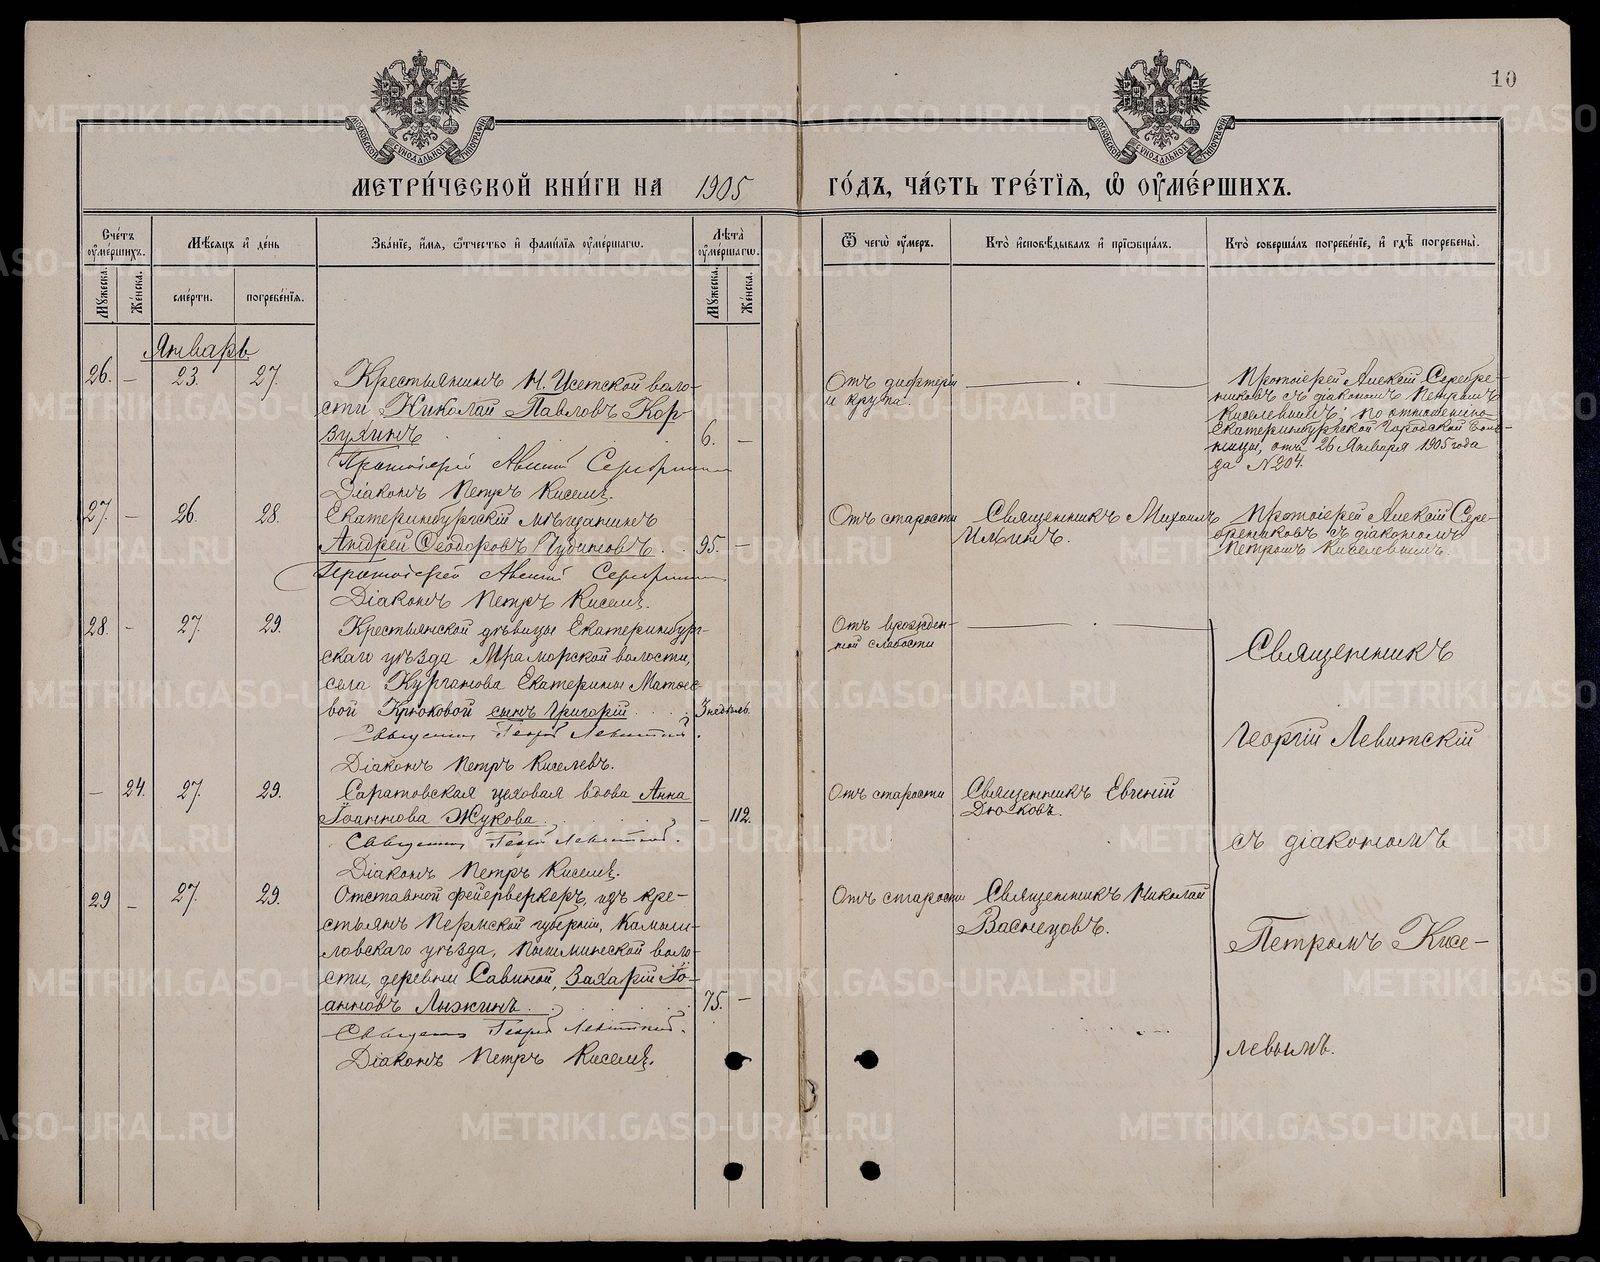 10
МОСКОВСКОЙ СУНОДАЛЬНОЙ ТИПОГРАФІИ
МОСКОВСКОЙ СУНОДАЛЬНОЙ ТИПОГРАФІИ
МЕТРИ́ЧЕСКОЙ КНИ́ГИ НА 1905 ГО́ДЪ, ЧА́СТЬ ТРЕ́ТІѦ, Ѡ҆ ОУ҆МЕ́РШИХЪ.
Сче́тъ оу҆ме́ршихъ.
Мꙋ́жеска.
Же́нска.
Мѣ́сѧцъ и҆ де́нь
сме́рти.
погребе́нїѧ.
Зва́нїе, и҆́мѧ, ѻ҆́тчество и҆ фами́лїѧ оу҆ме́ршагѡ.
Лѣ́та оу҆ме́ршагѡ.
Мꙋ́жеска.
Же́нска.
Ѿ чегѡ̀ оу҆́меръ.
Кто̀ и҆сповѣ́дывалъ и҆ прїѡбща́лъ.
Кто̀ соверша́лъ погребе́нїе, и҆ гдѣ̀ погребены̀.
Январь
26. — 23. 27.
Крестьянинъ Н. Исетской воло-
сти Николай Павловъ Кор-
зухинъ 6. —
Протоіерей Алексій Серебренник
Діаконъ Петръ Киселевъ.
Отъ дифтеріи
и крупа.
Протоіерей Алексій Серебре-
никовъ съ діакономъ Петромъ
Киселевымъ; по отношенію
Екатеринбургской Городской Боль-
ницы, отъ 26 Января 1905 года
за № 204.
27. — 26. 28.
Екатеринбургскій мѣщанинъ
Андрей Ѳеодоровъ Чудиновъ 95. —
Протоіерей Алексій Серебренник
Діаконъ Петръ Киселевъ.
Отъ старости
Священникъ Михаилъ
Ильинъ.
Протоіерей Алексій Сере-
бренниковъ съ діакономъ
Петромъ Киселевымъ.
28. — 27. 29.
Крестьянской дѣвицы Екатеринбург-
скаго уѣзда Мраморской волости,
села Курганова Екатерины Матѳее-
вой Крюковой сынъ Григорій 3 недѣль.
Священник Георгій Левитскій.
Діаконъ Петръ Киселевъ.
Отъ врожден-
ной слабости
— 24. 27. 29.
Саратовская цеховая вдова Анна
Іоаннова Жукова — 112.
Священник Георгій Левитскій.
Діаконъ Петръ Киселевъ.
Отъ старости
Священникъ Евгеній
Дюковъ.
29 — 27. 29.
Отставной фейерверкеръ, изъ кре-
стьянъ Пермской губерніи, Камыш-
ловскаго уѣзда, Пышминской воло-
сти, деревни Савиной, Захарій Іо-
анновъ Лыжинъ 75. —
Священник Георгій Левитскій.
Діаконъ Петръ Киселевъ.
Отъ старости
Священникъ Николай
Васнецовъ.
Священникъ
Георгій Левитскій
съ діакономъ
Петромъ Кисе-
левымъ.
METRIKI.GASO-URAL.RU